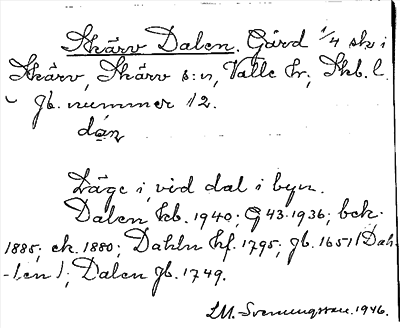 Skärv Dalen. Gård 1/4 sk i
Skärv, Skärv s:n, Valle hr, Skb. l.
jb. nummer 12.
dán
Läge i, vid dal i byn.
Dalen kb. 1940; G 43. 1936; bek.
1885; ek. 1880; Dahln hf. 1795; jb. 1651 (Dah-
-len); Dalen jb. 1749.
1946.